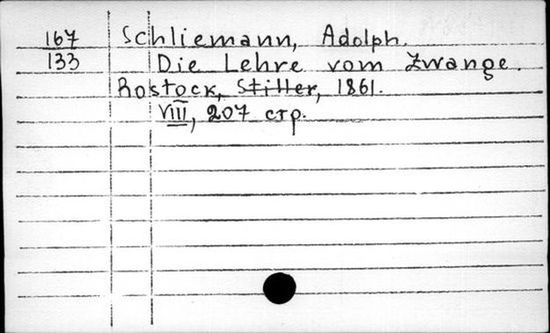 167 Schliemann, Adolph.
133 Die Lehre vom Zwange.
Rostock, Stiller, 1861.
VIII, 207 стр.